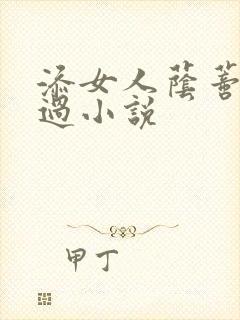 添女人蔭蒂
過小説
甲丁